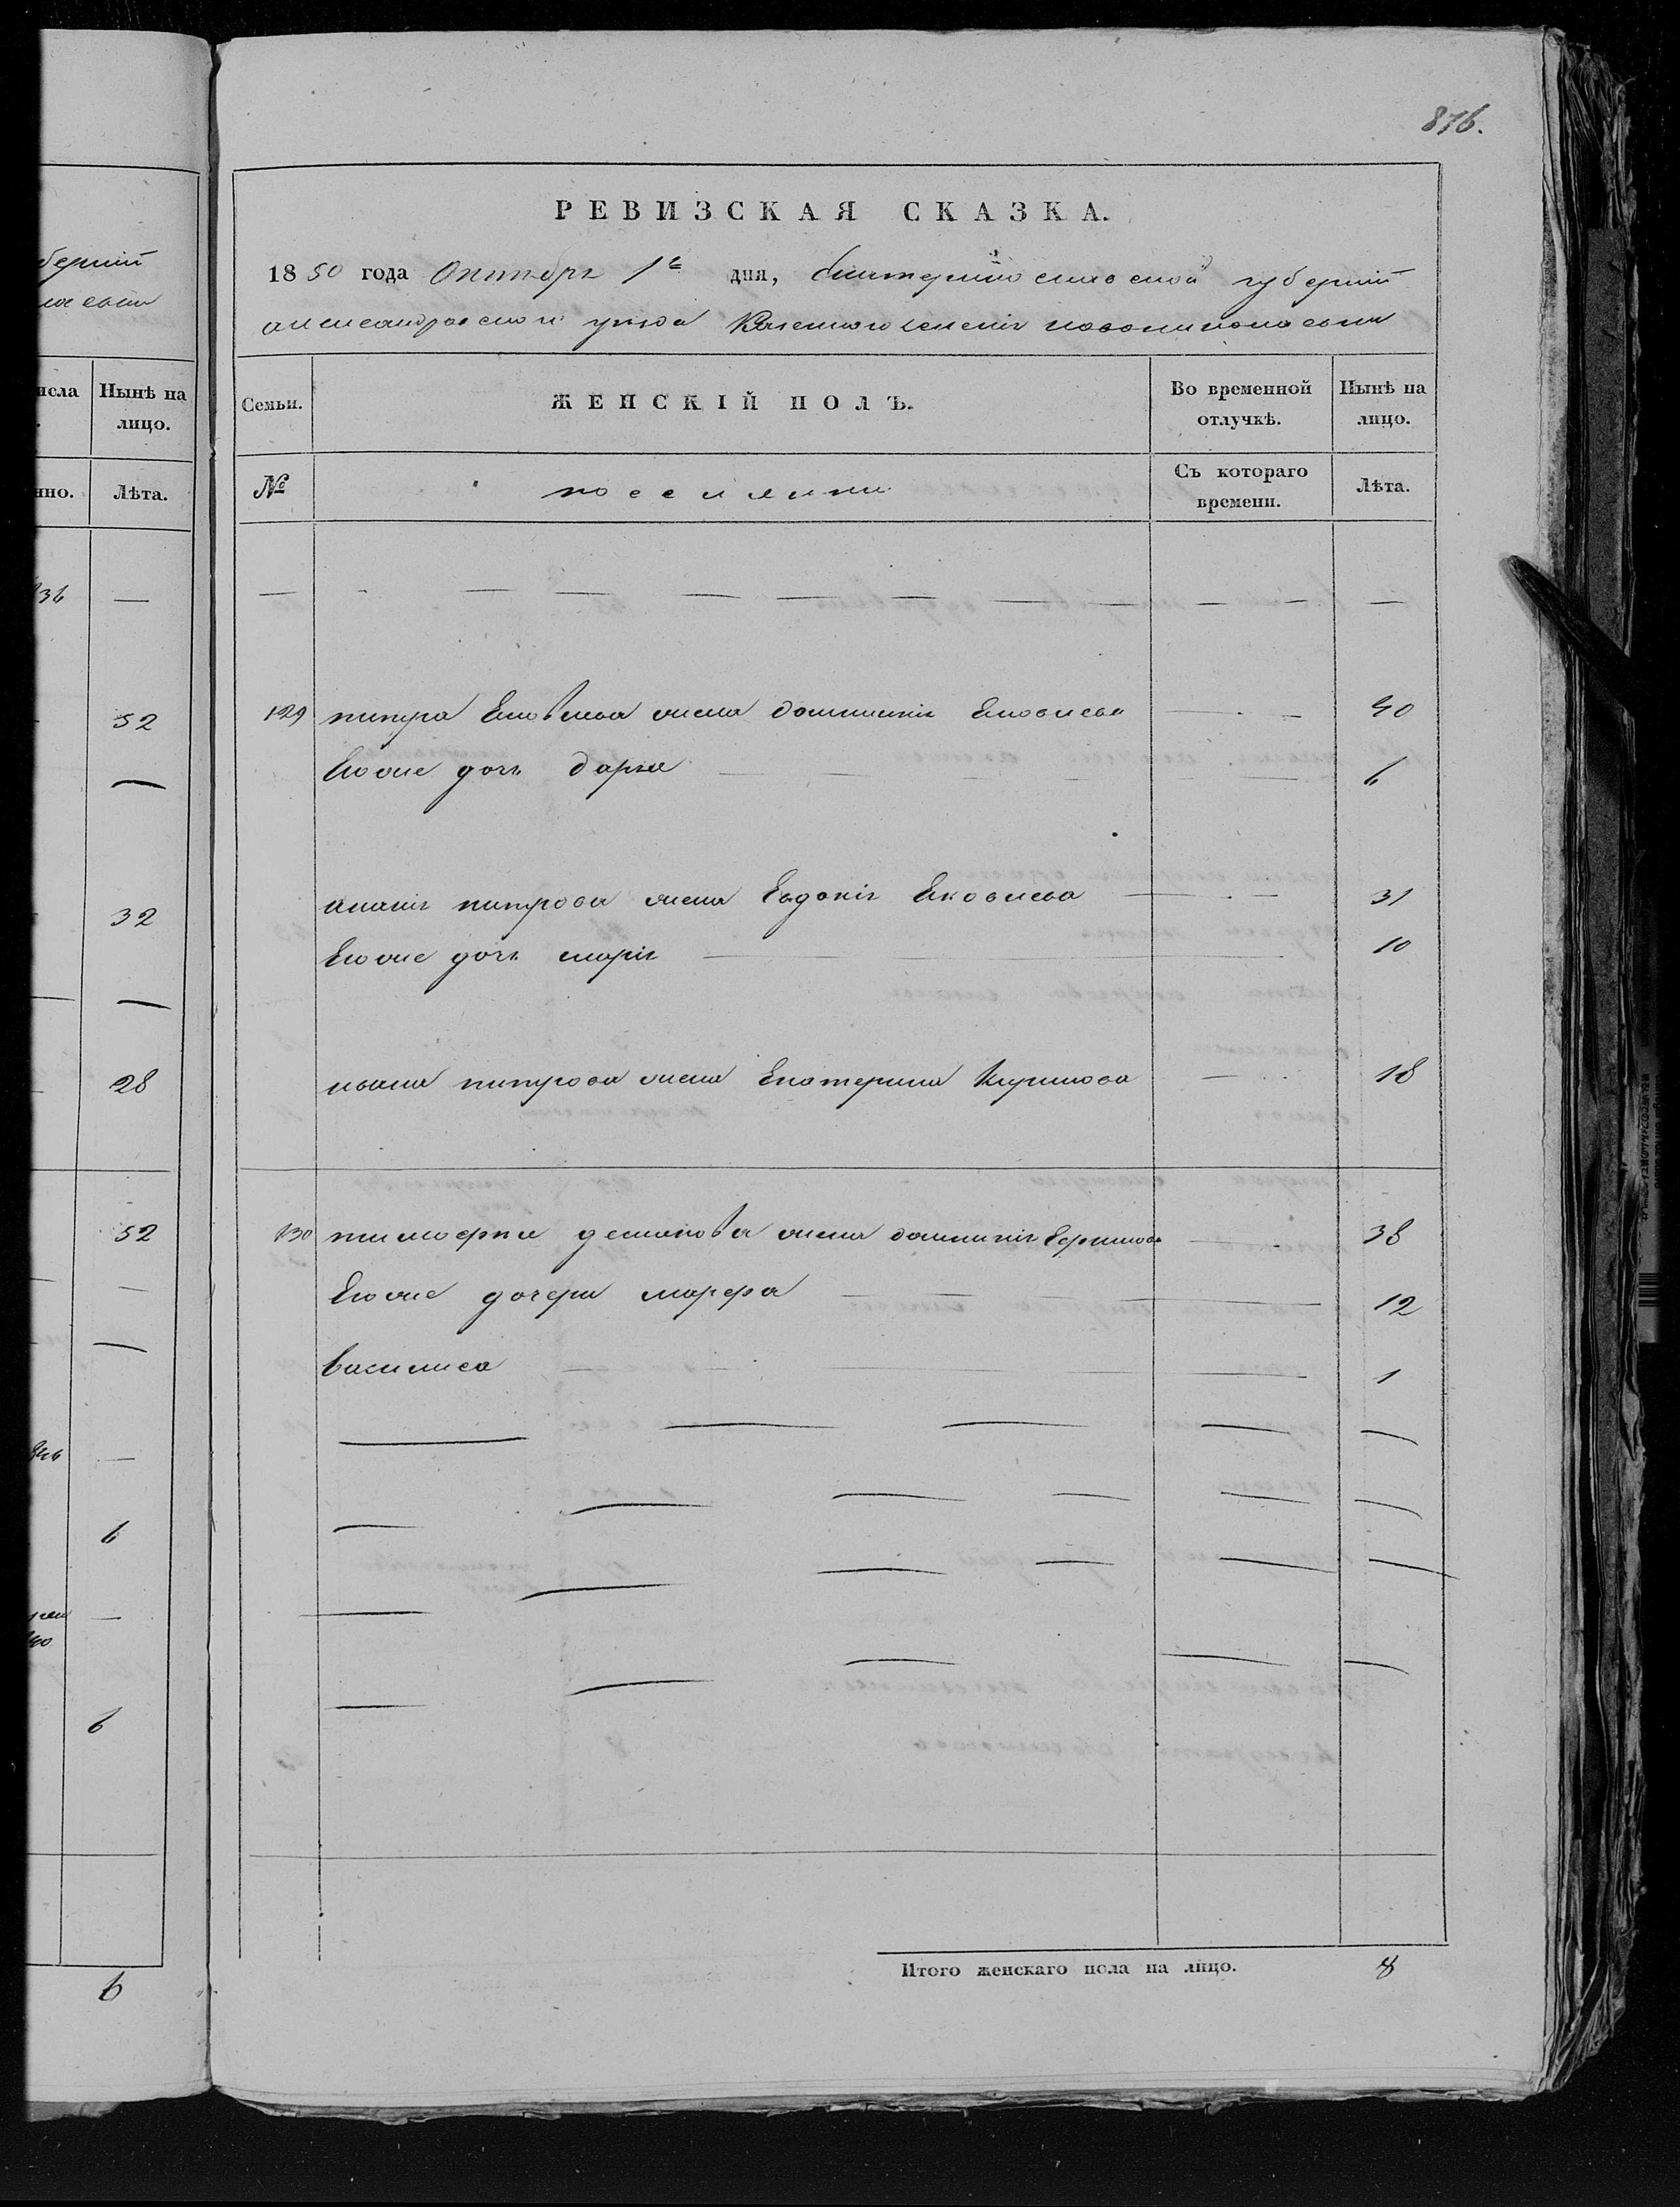 876.
РЕВИЗСКАЯ СКАЗКА.
1850 года Октября 1го дня, Екатеринославской губерніи
александровского уезда Казенного селенія новониколаевки
Семьи. ЖЕНСКІЙ ПОЛЪ. Во временной отлучкѣ. Нынѣ на лицо.
№ Съ котораго времени. Лѣта.
129 питра Яковлева жена домникія Яковлева 40
Ею же дочь дарья 6
ананія питрова жена Евдокія Яковлева 31
Ею же дочь марія 10
ивана питрова жена Екатерина Кирилова 18
130 тимофея демянова жена домникія Ефимова 38
Ею же дочери марфа 12
василиса 1
Итого женскаго пола на лицо. 8
берніи
исла Нынѣ на лицо.
нно. Лѣта.
52
32
28
52
6
6
6